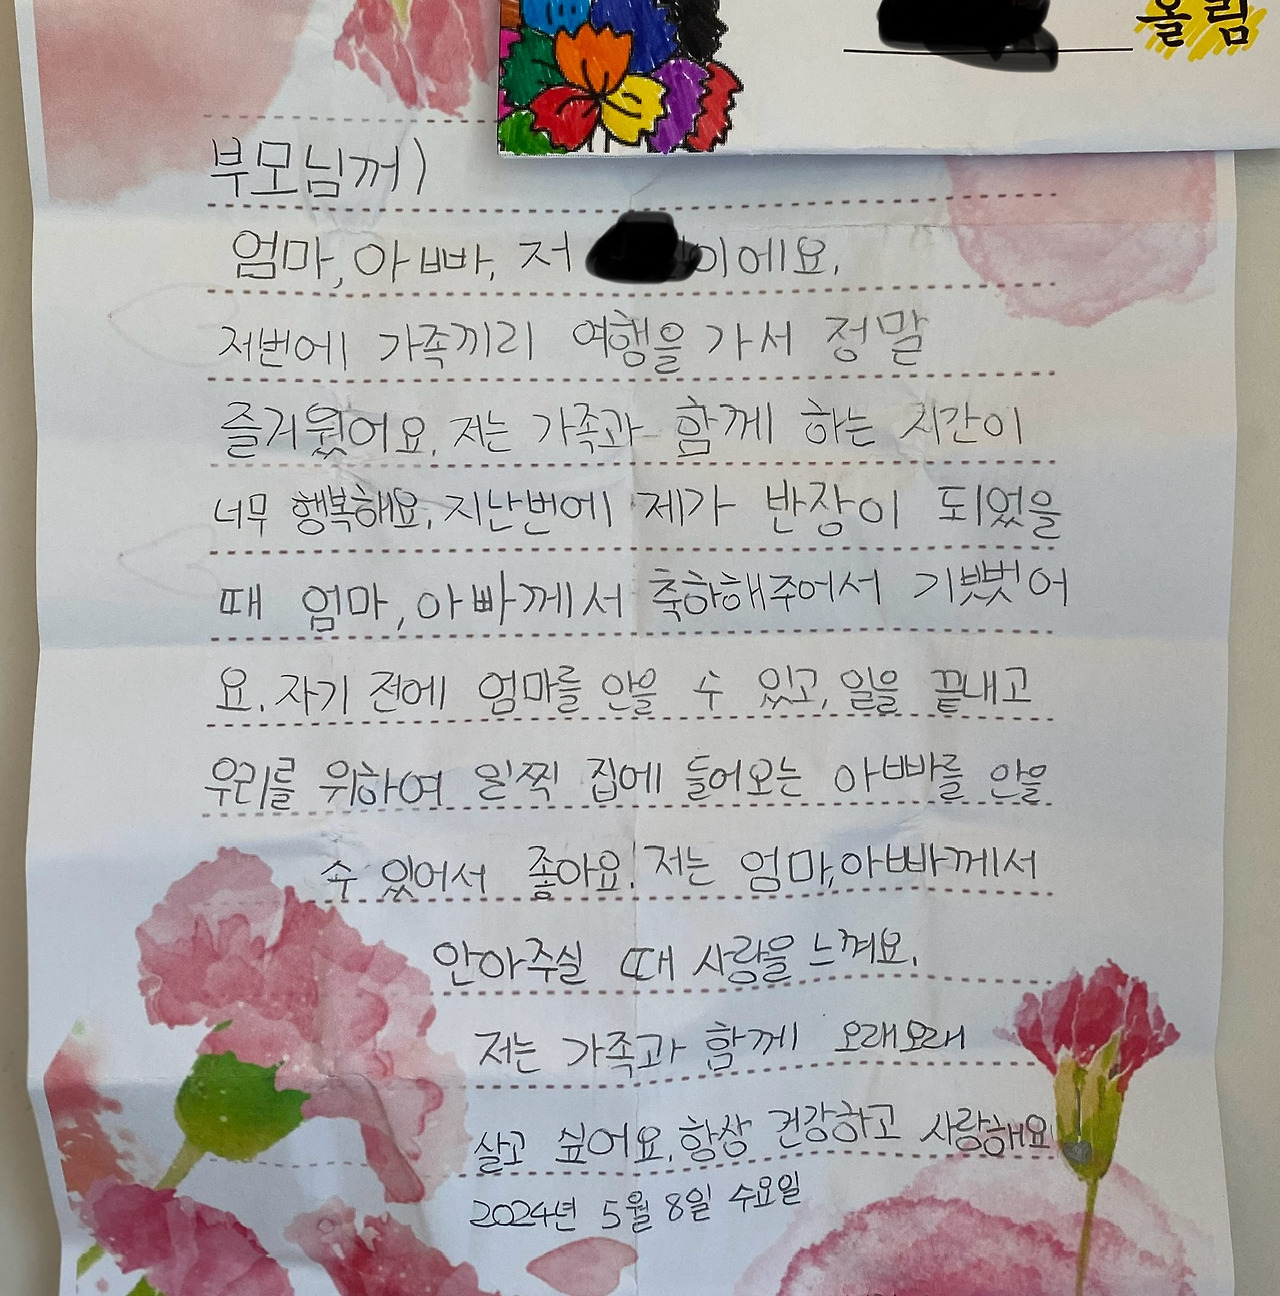 올림
부모님께)
엄마, 아빠, 저 이에요.
저번에 가족끼리 여행을 가서 정말
즐거웠어요. 저는 가족과 함께 하는 시간이
너무 행복해요. 지난번에 제가 반장이 되었을
때 엄마, 아빠께서 축하해주어서 기뻤벗어
요. 자기 전에 엄마를 안을 수 있고, 일을 끝내고
우리를 위하여 일찍 집에 들어오는 아빠를 안을
수 있어서 좋아요! 저는 엄마, 아빠께서
안아주실 때 사랑을 느껴요.
저는 가족과 함께 오래오래
살고 싶어요. 항상 건강하고 사랑해요
2024년 5월 8일 수요일